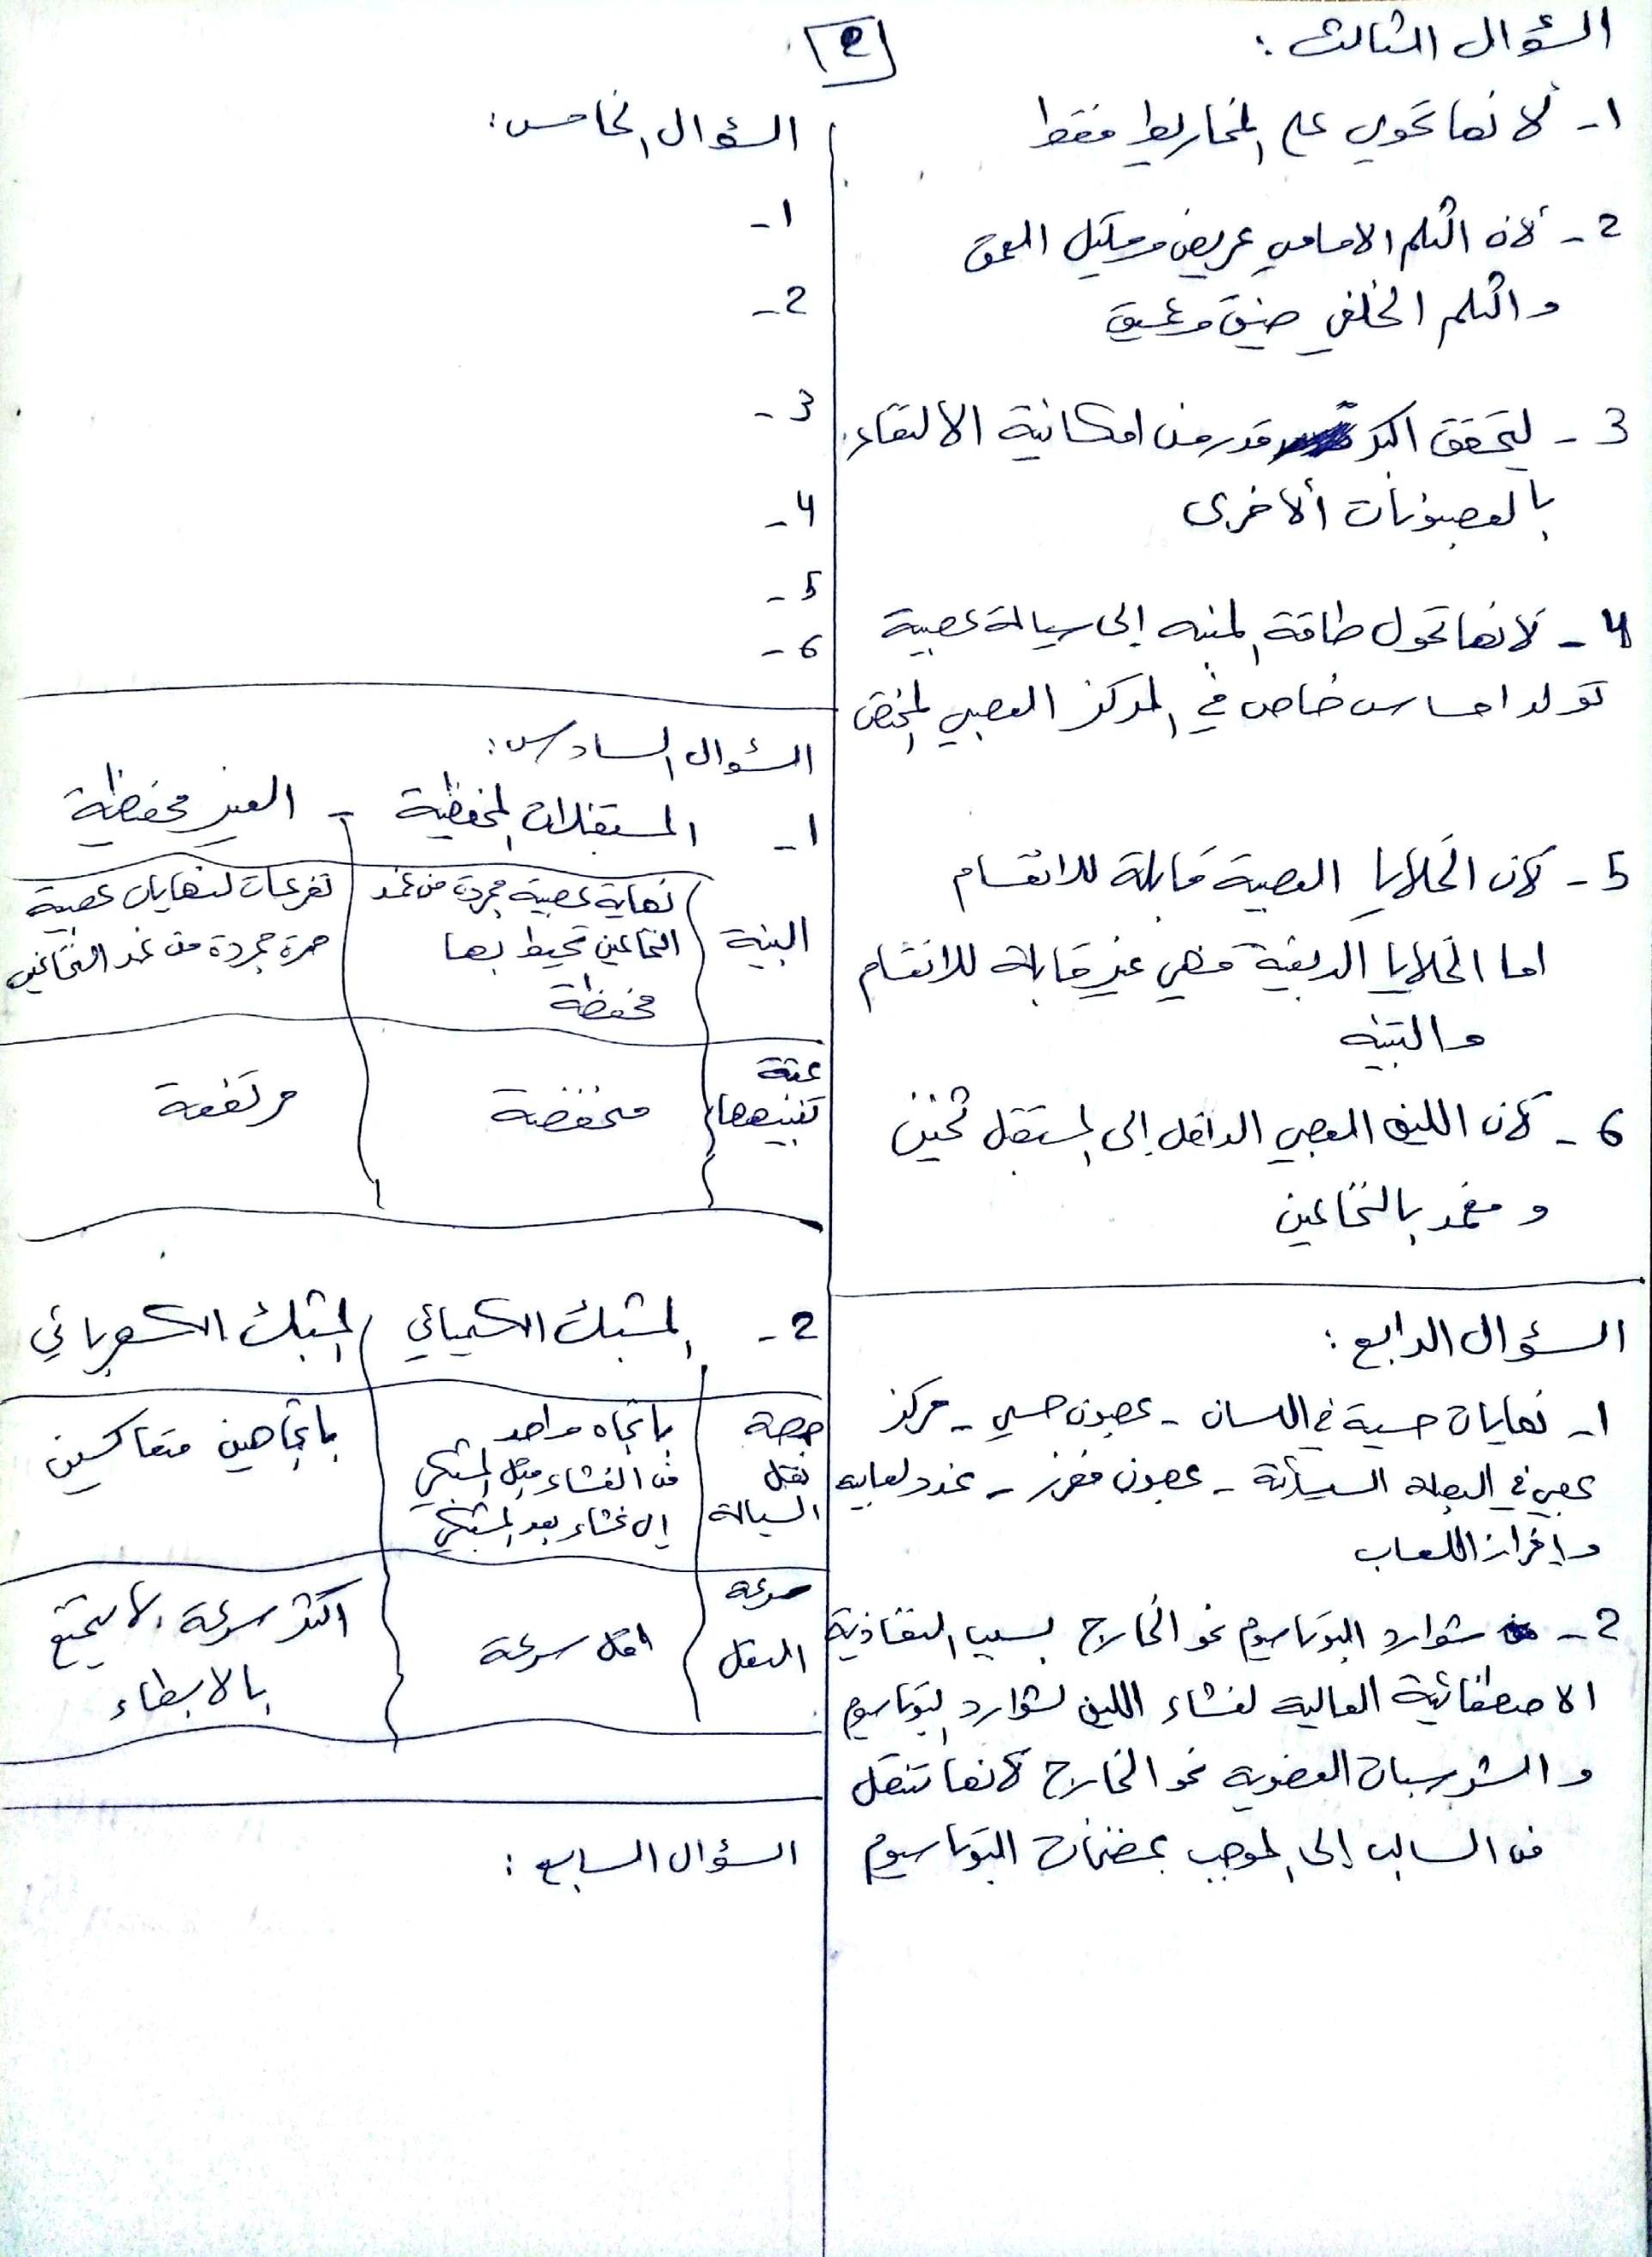 2
السؤال الثالث :
1- لانها تحوي على المخاريط فقط
2- لأن الثلم الامامي عريض وقليل العمق
والثلم الخلفي ضيق وعميق
3- ليتحقق اكبر قدر من امكانية الالتقاء
بالعصبونات الأخرى
4- لانها تحول طاقة المنبه إلى سيالة عصبية
تولد احساس خاص في المركز العصبي المختص
5- لأن الخلايا العصبية قابلة للانقسام
اما الخلايا الدبقية فهي غير قابلة للانقسام
والتنبيه
6- لأن الليف العصبي الداخل إلى المستقبل ثخين
و مغمد بالنخاعين
السؤال الرابع :
1- نهايات حسية في اللسان - عصبون حسي - مركز
عصبي في البصلة السيسائية - عصبون مفرز - غدد لعابية
وإفراز اللعاب
2- شوارد البوتاسيوم نحو الخارج بسبب النفاذية
الاصطفائية العالية لغشاء الليف لشوارد البوتاسيوم
والشرسبات العضوية نحو الخارج لانها تنتقل
من السالب إلى الموجب بمضخات البوتاسيوم
السؤال الخامس :
1-
2-
3-
4-
5-
6-
السؤال السادس :
1- المستقبلات المحفظية - الغير محفظية
البنية نهاية عصبية مجردة من غمد تفرعات لنهايات عصبية
النخاعين تحيط بها حرة مجردة من غمد النخاعين
محفظة
عتبة
تنبيهها منخفضة مرتفعة
2- المشبك الكيميائي المشبك الكهربائي
جهة باتجاه واحد باتجاهين متعاكسين
نقل من الغشاء قبل المشبكي
السيالة إلى غشاء بعد المشبكي
سرعة
النقل اقل سرعة اكثر سرعة لا يتمتع
بالابطاء
السؤال السابع :